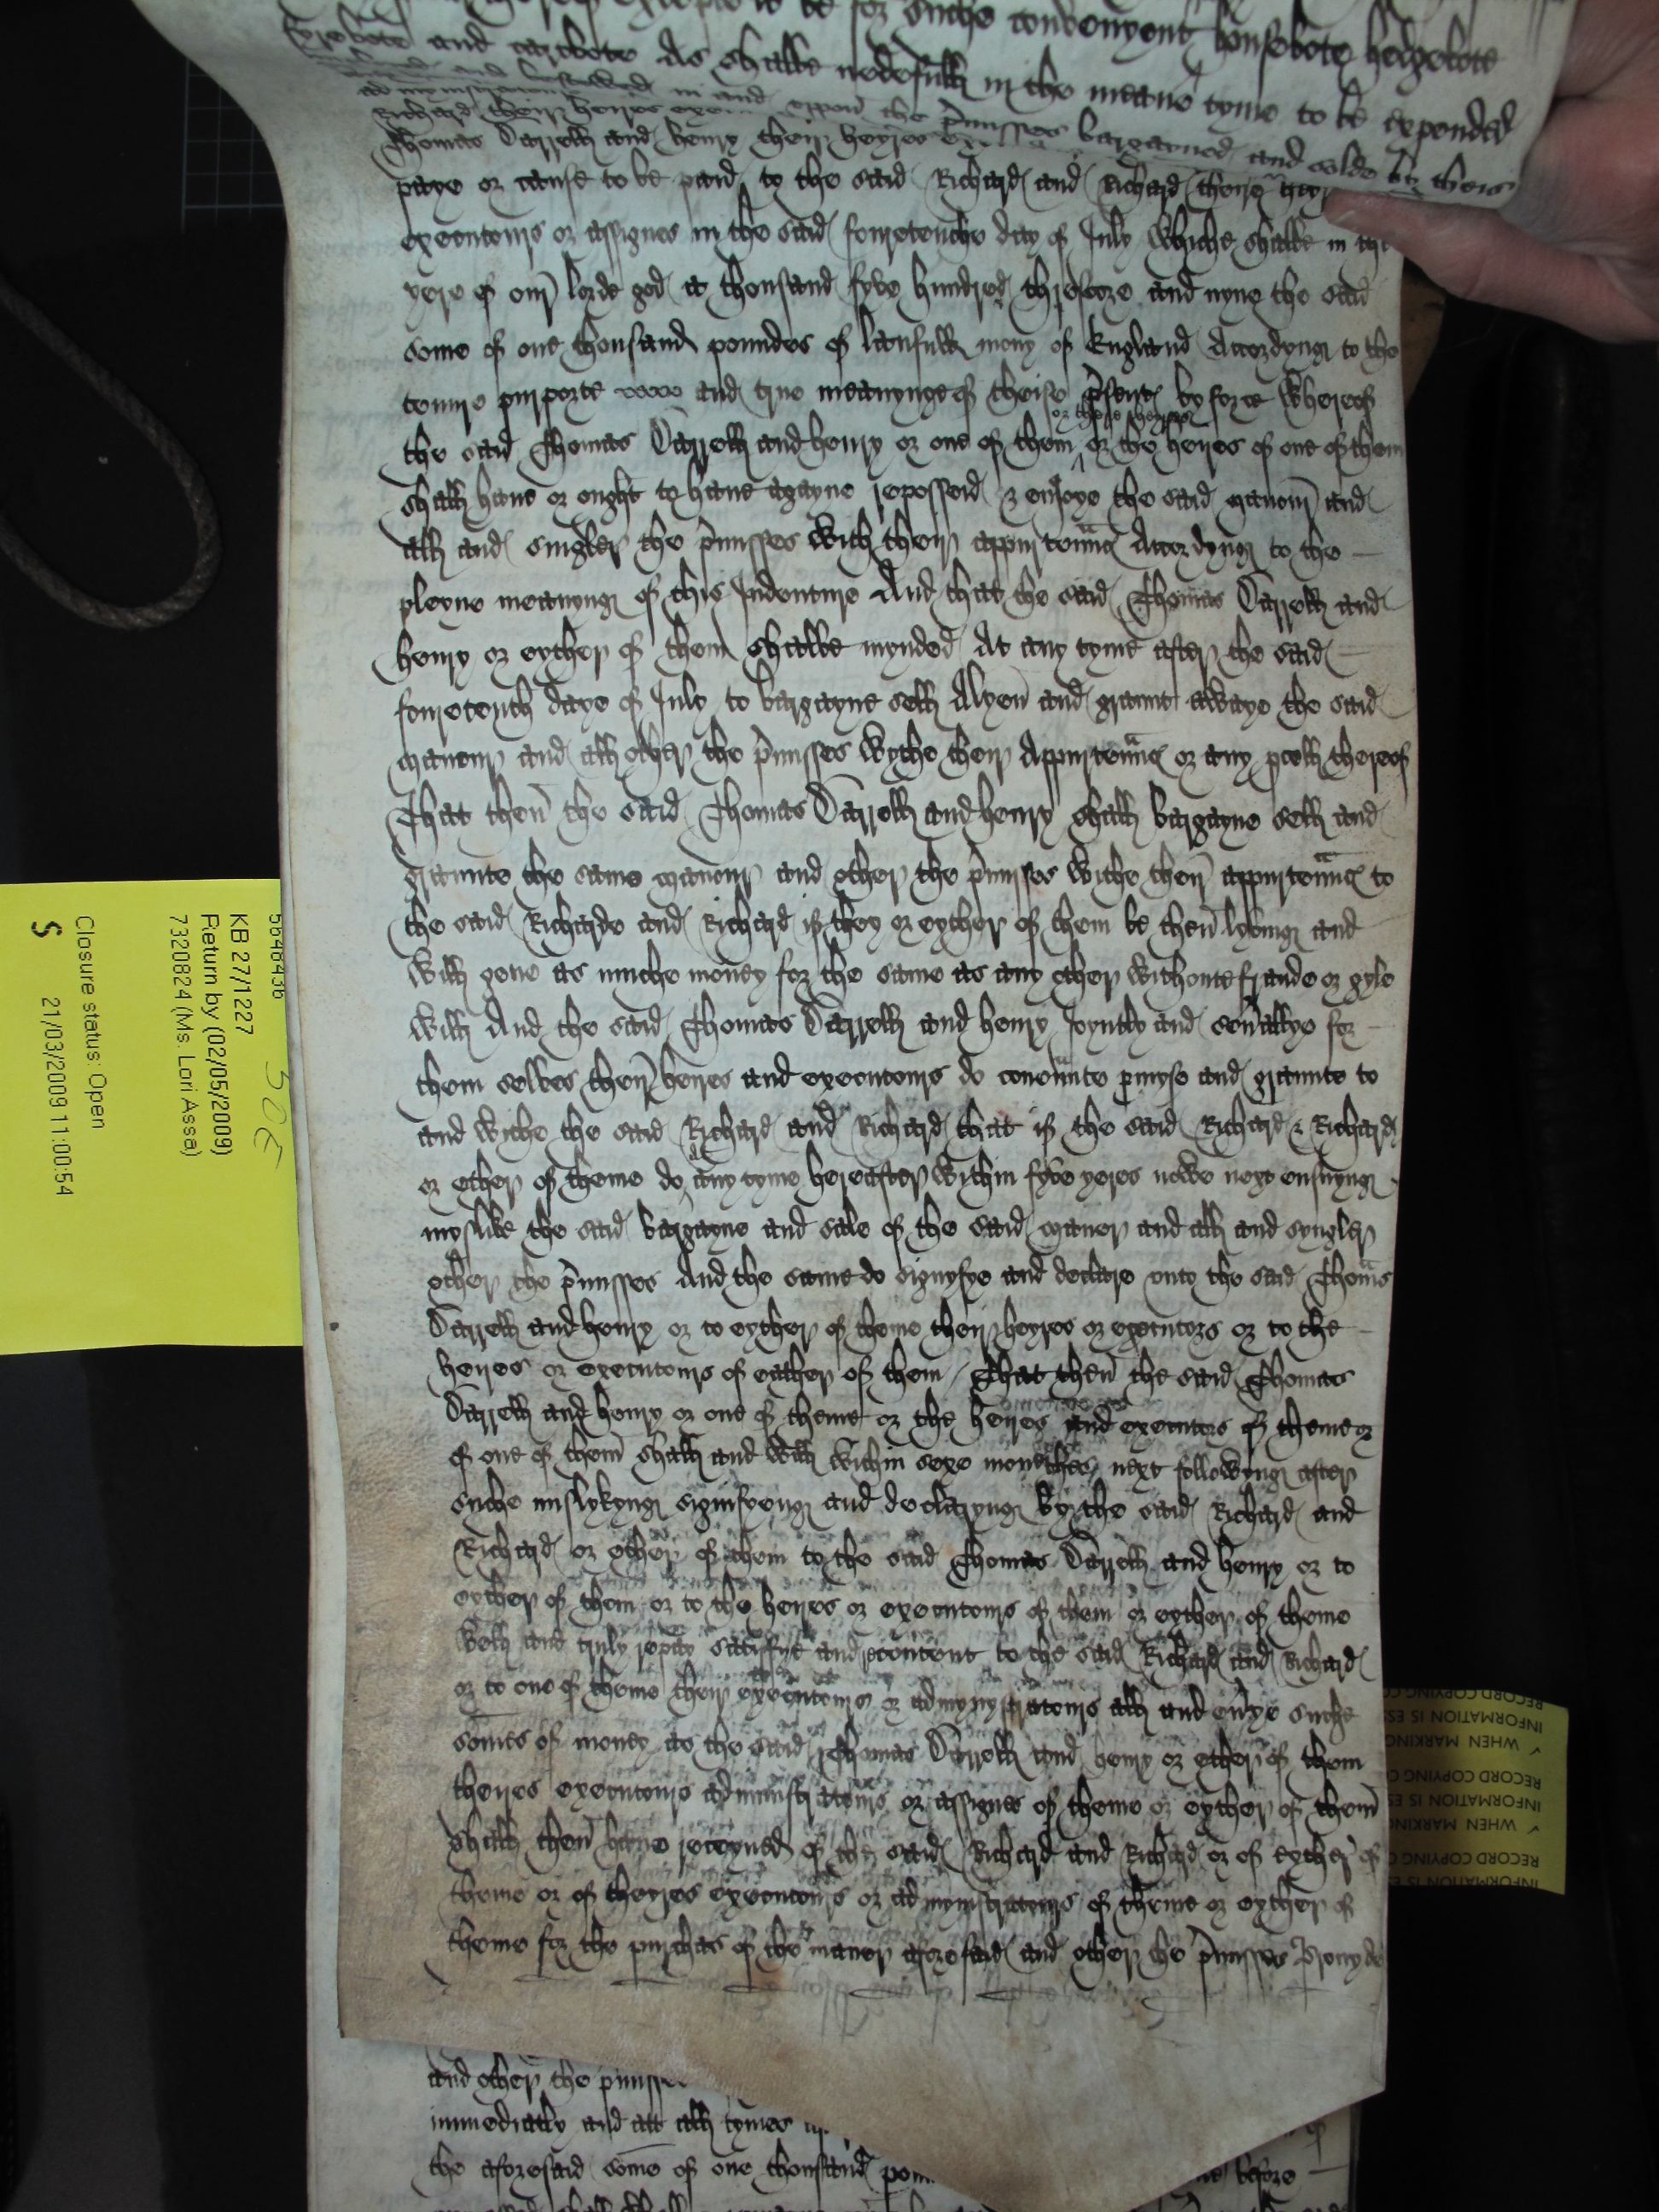 for suche convenyent housebote hedgebote
fyrebote and cartbote As shalbe nedefull in the meane tyme to be expended
in and uppon the p'misses bargayned and solde by theis
Richard their heires
Thomas Darrell and henry their heyres
paye or cause to be paid to the said Richard and Richard there
executours or assignes in the said fouretenthe day of July whiche shalbe in the
yere of our lorde god a thousand fyve hundred threscore and nyne the said
some of one thousand poundes of laufull mony of England Accordyng to the
tenure purporte and true meanynge of theise p'sent by force whereof
the said Thomas Darrell and henry or one of them or the heires of one of them
shall haue or ought to haue agayne repossed & enjoye the said manour and
all and singler the p'misses with their appurtennc Accordyng to the
pleyne meanyng of this Indenture And that the said Thomas Darrell and
henry or eyther of them shalbe mynded At any tyme after the said
fouretenth daye of July to bargayne sell Alyen and graunt awaye the said
manour and all other the p'misses wythe their Appurtennc or any pcell thereof
That then the said Thomas Darrell and henry shall bargayne sell and
graunte the same manour and other the p'misses withe their appurtennc to
the said Richarde and Richard if they or eyther of them be then lyving and
will geue as muche money for the same as any other withoute fraude or gyle
will And the said Thomas Darrell and henry Joyntly and sev'allye for
them selves their heires and executours do couen'nte pmyse and graunte to
and withe the said Richard and Richard that if the said Richard & Richard
or ether of theme do at any tyme hereafter within fyve yeres nowe next ensuyng
myslike the said bargayne and sale of the said maner and all and syngler
other the p'misses And the same do signyfye and declare unto the said Thomas
Darrell and henry or to eyther of theme their heyres or executors or to the
heires or executours of eather of them / That then the said Thomas
Darrell and henry or one of theme or the heires and executors of theme or
of one of them shall and will within sexe monethes next followyng after
suche mislykyng signifyeng and declaryng by the said Richard and
Richard or other of them to the said Thomas Darrell and henry or to
eyther of them or to the heires or executours of them or eyther of theme
well and truly repay satisfye and content to the said Richard and Richard
or to one of theme their executours or admynystratours all and eu'ye suche
somes of money as the said Thomas Darrell and henry or ether of them
theires executours administratours or assignes of theme or eyther of them
shall then haue receyued of the said Richard and Richard or of eyther of
theme or of theyres executours or admynistratours of theme or eyther of
theme for the purchas of the maner aforesaid and other the p'misses
and other the p'misse
immediatly and att all tymes
the aforesaid some of one thousand before
5648436
KB 27/1227
Return by (02/05/2009)
7320824 (Ms. Lori Assa)
Closure status: Open
S 21/03/2009 11:00:54
RECORD COPYING
INFORMATION IS ES
✓ WHEN MARKING
RECORD COPYING
INFORMATION IS ES
✓ WHEN MARKING
RECORD COPYING
INFORMATION IS ES